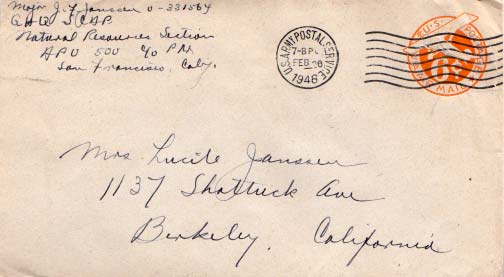 Major J. F. Janssen O-331564
GHQ SCAP
Natural Resources Section
APO 500 c/o P.M.
San Francisco, Calif.
U.S. ARMY POSTAL SERVICE
7-8 PM
FEB 26
1946
U.S. POSTAGE
AIR MAIL
Mrs. Lucile Janssen
1137 Shattuck Ave
Berkeley, California